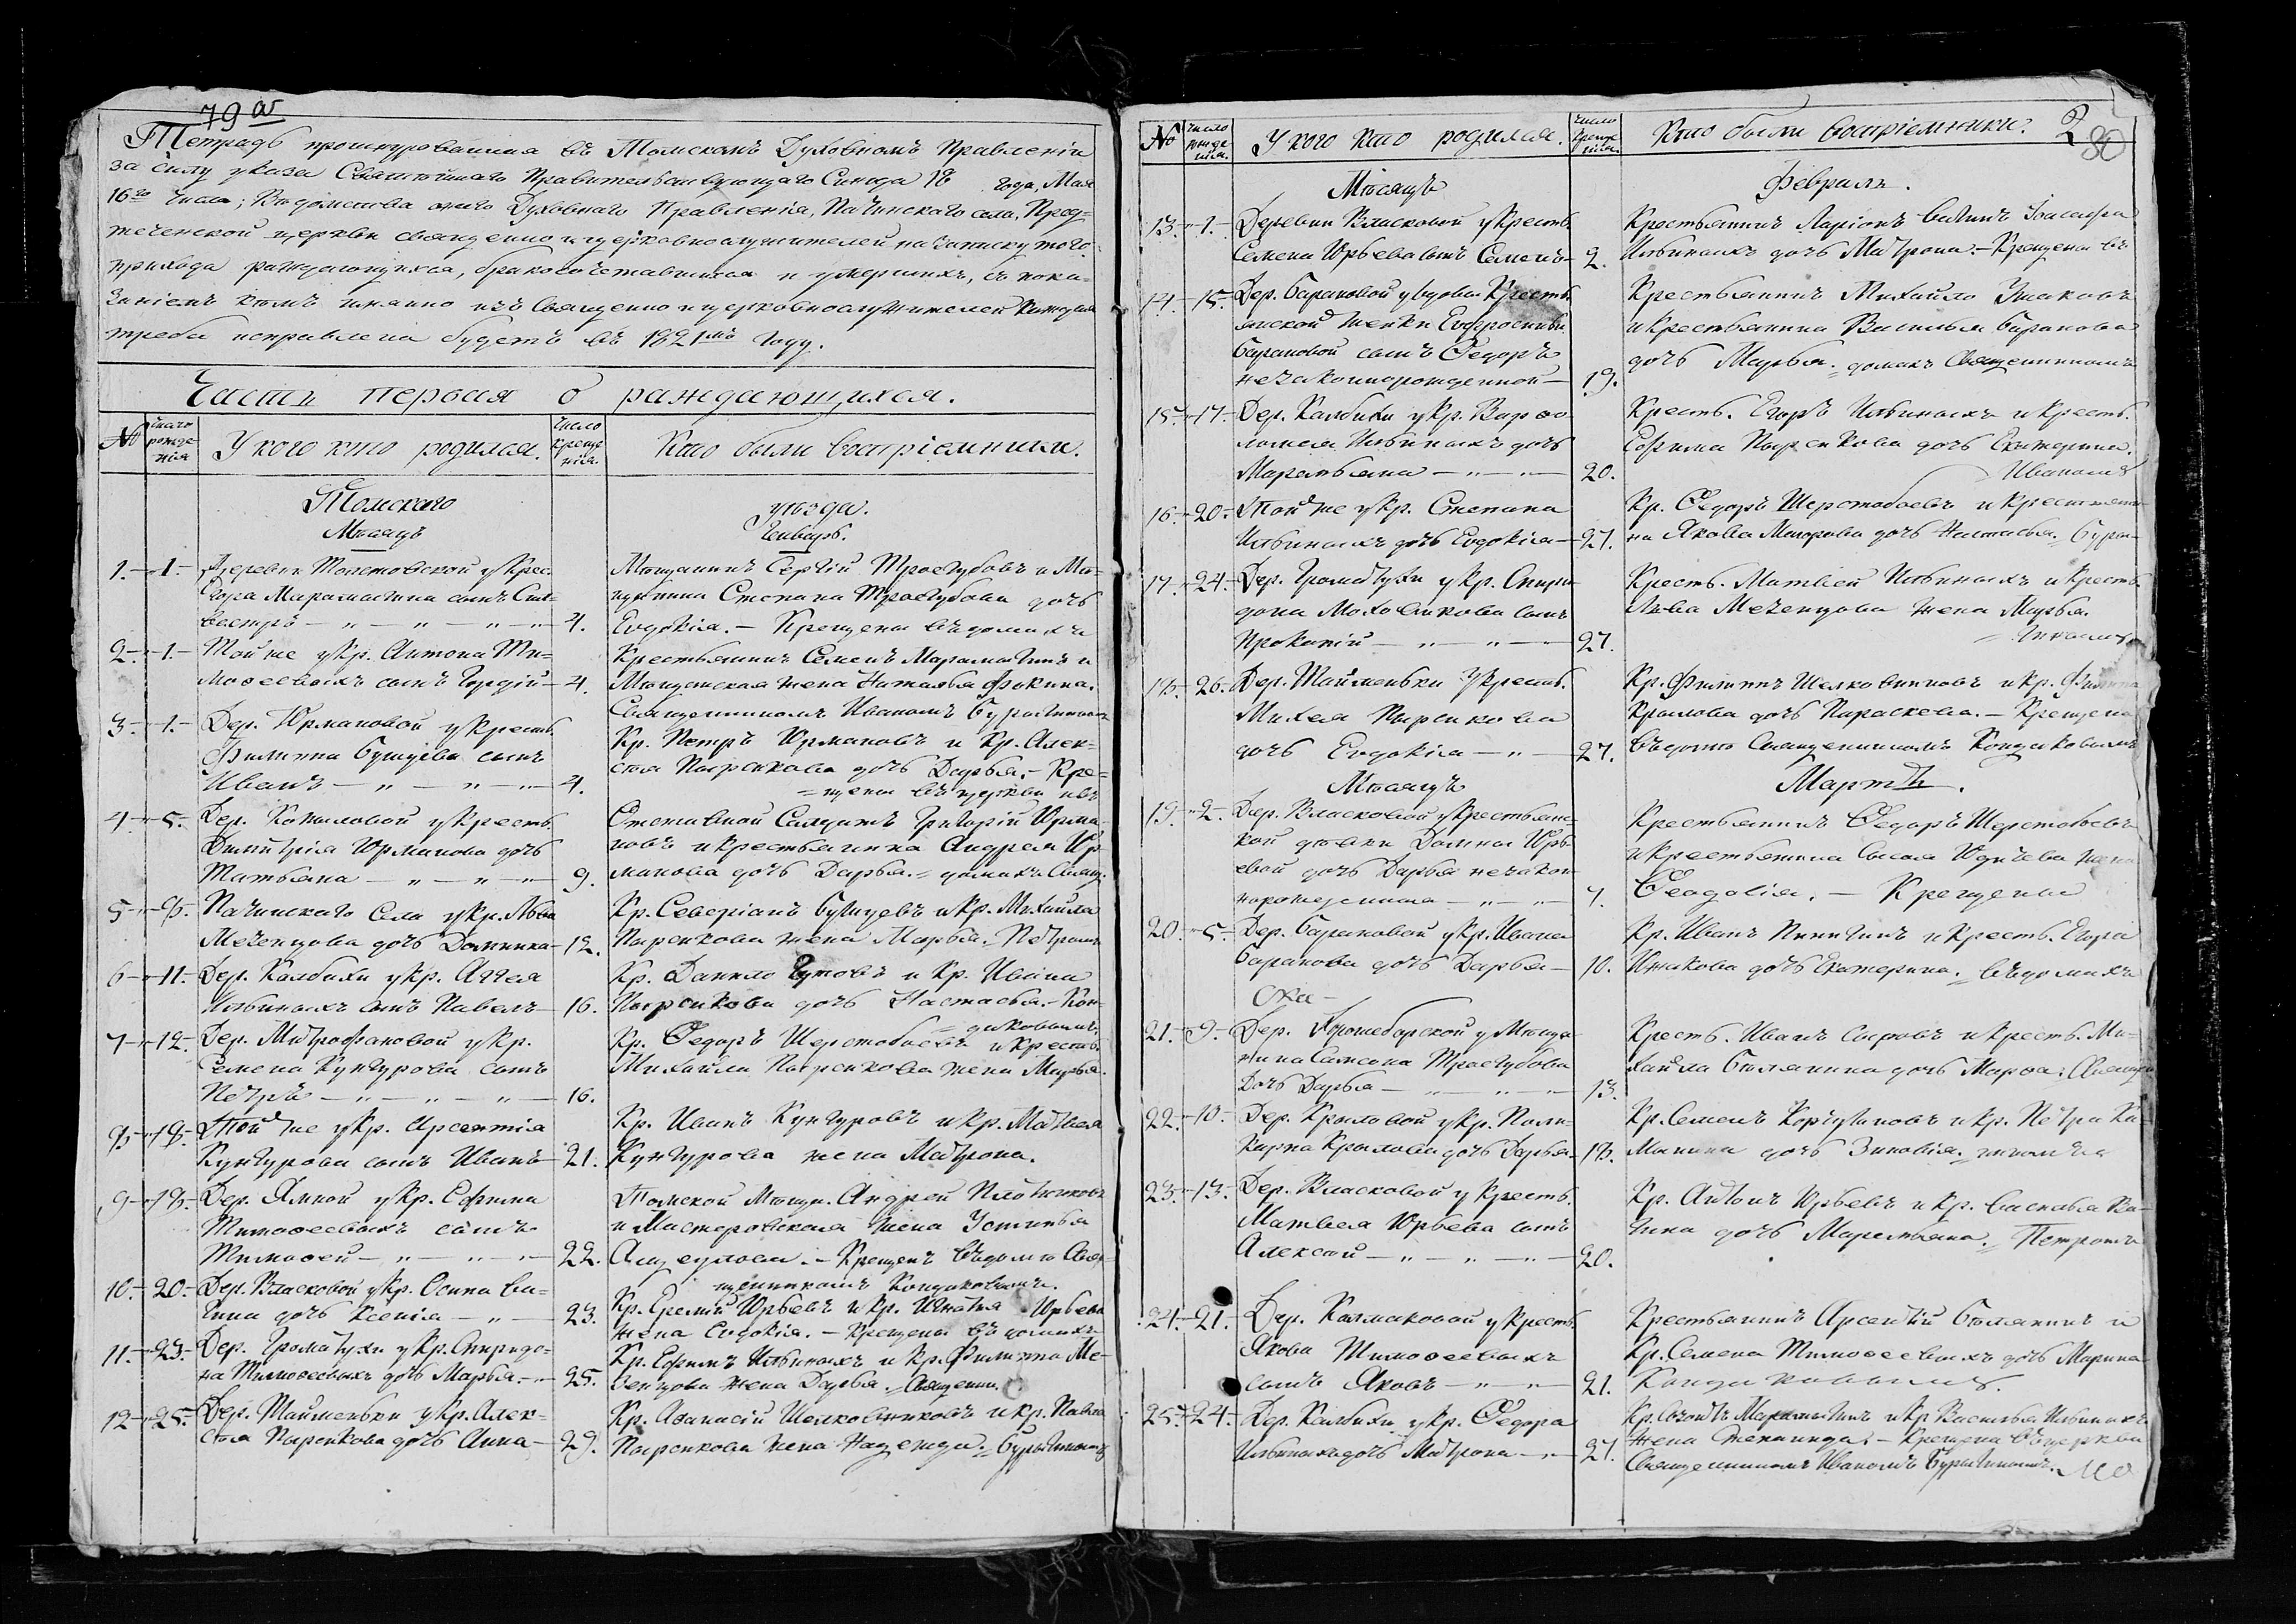 79 об
Тетрадь прошнурованная въ Томскомъ Духовномъ Правленіи
за силу указа Святѣйшаго Правительствующаго Синода 18 года, Мая
16го числа; Вѣдомства онаго Духовнаго Правленія, Пачинскаго села, Пред=
теченской церкви священно и церковнослужителей на записку того
прихода раждающихся, бракосочетавшихся и умершихъ, съ пока=
заніемъ кѣмъ имянно изъ Священно и церковнослужителей каждая
треба исправлена будетъ въ 1821мъ году.
Часть первая о раждающихся.
№ число рожденія У кого кто родился. число крещенія. Кто были воспріемники.
Томскаго уѣзда.
Мѣсяцъ Генварь.
1. 1. Деревни
сынъ Сил=
вестръ 4.
Мѣщанинъ Сергій Трагубовъ и Мѣ=
щанина Степана Трагубова дочь
Евдокія. - Крещены въ домахъ
2. 1. Той же у Кр. Антона Ти=
мофеевыхъ сынъ Гордій 4.
Крестьянинъ Семенъ и
Мѣщанская жена Наталья Фокина.
Священникомъ Иваномъ
3. 1. Дер. Юрмановой у Крест.
Филиппа Бушуева сынъ
Иванъ 4.
Кр. Петръ Юрмановъ и Кр. Алек=
сѣя Пырсикова дочь Дарья. - Кре=
=щены въ церкви
4. 5. Дер. Копыловой у Крест.
Димитрія Юрманова дочь
Татьяна 9.
Отставной Солдатъ Григорій Юрма=
новъ и крестьянина Андрея Юр=
манова дочь Дарья. = домахъ Свящ.
5. 8. Пачинскаго Села у Кр. Льва
Меченцова дочь Домника 12.
Кр. Северіанъ Бушуевъ и Кр. Михайла
Пырсикова жена Марья. Петромъ
6. 11. Дер. Калбихи у Кр. Аггея
Ильиныхъ сынъ Павелъ 16.
Кр. Данило и Кр. Ивана
Пырсикова дочь Настасья. - Кон=
=диковымъ.
7. 12. Дер. Митрофановой у Кр.
Семена Кунгурова сынъ
Петръ 16.
Кр. Ѳедоръ Шерстобоевъ и Крестьян.
Михайла Пырсикова жена Марья.
8. 18. Той же у Кр. Арсентія
Кунгурова сынъ Иванъ 21.
Кр. Иванъ Кунгуровъ и Кр. Матвея
Кунгурова жена Матрона.
9. 18. Дер. Ямной у Кр. Ефима
Тимофеевыхъ сынъ
Тимофей 22.
Томской Мѣщан. Андрей Плотниковъ
и Мастеровская жена Устинья
- Крещенъ въ домѣ Свя=
щенникомъ Кондиковымъ.
10. 20. Дер. Власковой у Кр. Осипа Ва=
гина дочь Ксенія 23.
Кр. Еремѣй Юрьевъ и Кр. Игнатія Юрьева
жена Евдокія. - Крещены въ домахъ
11. 23. Дер. Громатухи у Кр. Спиридо=
на Тимофеевыхъ дочь Марья. 25.
Кр. Ефимъ Ильиныхъ и Кр. Филиппа Ме=
ченцова жена Дарья. Священник.
12. 25. Дер. Тайменьки у Кр. Алек=
сѣя Пырсикова дочь Анна 29.
Кр. Афанасій Шелковниковъ и Кр. Павла
Пырсикова жена Надежда.
2
80
№ число рожденія. У кого кто родился. число крещенія. Кто были воспріемники.
Мѣсяцъ Февраль.
13. 1. Деревни Власковой у Крест.
Семена Юрьева сынъ Семенъ 2.
Крестьянинъ Ларіонъ Вагинъ Іоасафа
Ильиныхъ дочь Матрона. - Крещены въ
14. 15. Дер. Барановой у вдовы Крестьян=
янской женки Евфросиньи
Барановой сынъ Ѳедоръ
незаконнорожденной 19.
Крестьянинъ Михайло Ушаковъ
и крестьянина Василья Баранова
дочь Марья. = домахъ Священникомъ
15. 17. Дер. Калбихи у Кр. Варфо
ломея Ильиныхъ дочь
Маремьяна 20.
Кресть. Егоръ Ильиныхъ и Кресть.
Ефима Пырсикова дочь Екатерина.
Иваномъ
16. 20. Той же у Кр. Степана
Ильиныхъ дочь Евдокія 27.
Кр. Ѳедоръ Шерстобоевъ и крестьяни=
на Якова дочь Настасья =
17. 24. Дер. Громатухи у Кр. Спири=
дона Моховикова сынъ
Прокопій 27.
Кресть. Матвей Ильиныхъ и Кресть.
Льва Меченцова жена Марья.
18. 26. Дер. Тайменьки у Кресть.
Михея Пырсикова
дочь Евдокія 27.
Кр. Филиппъ Шелковниковъ и Кр. Филиппа
Крылова дочь Параскева. - Крещена
въ домѣ Священникомъ Кондиковымъ
Мѣсяцъ Мартъ.
19. 2. Дер. Власковой у крестьянс=
кой дѣвки Домны Юрь=
евой дочь Дарья незакон=
норожденная 4.
Крестьянинъ Ѳедоръ Шерстобоевъ
и крестьянина Сысоя Юдичева жена
Ѳеодосія. - Крещены
20. 5. Дер. Барановой у Кр. Ивана
Баранова дочь Дарья 10.
Кр. Иванъ и Кресть. Егора
Ушакова дочь Екатерина. = въ домахъ
21. 9. Дер. у Мѣща=
нина Самсона Трагубова
дочь Дарья 13.
Кресть. Иванъ Сыровъ и Кресть. Ми=
хайла дочь Марфа.
22. 10. Дер. Крыловой у Кр. Поли=
карпа Крылова дочь Дарья 18.
Кр. Семенъ и Кр. Петра
дочь Зиновія.
23. 13. Дер. Власковой у Кресть.
Матвея Юрьева сынъ
Алексѣй 20.
Кр. Антонъ Юрьевъ и Кр. Василья Ва=
гина дочь Маремьяна. = Петромъ
24. 21. Дер. Колмаковой у Кресть.
Якова Тимофеевыхъ
сынъ Яковъ 21.
Крестьянинъ Арсентій и
Кр. Семена Тимофеевыхъ дочь Марина
Кондиковымъ.
25. 24. Дер. Калбихи у Кр. Ѳедора
Ильиныхъ дочь Матрона 27.
и Кр. Василья Ильиныхъ
жена - Крещена въ церкви
Священникомъ Иваномъ